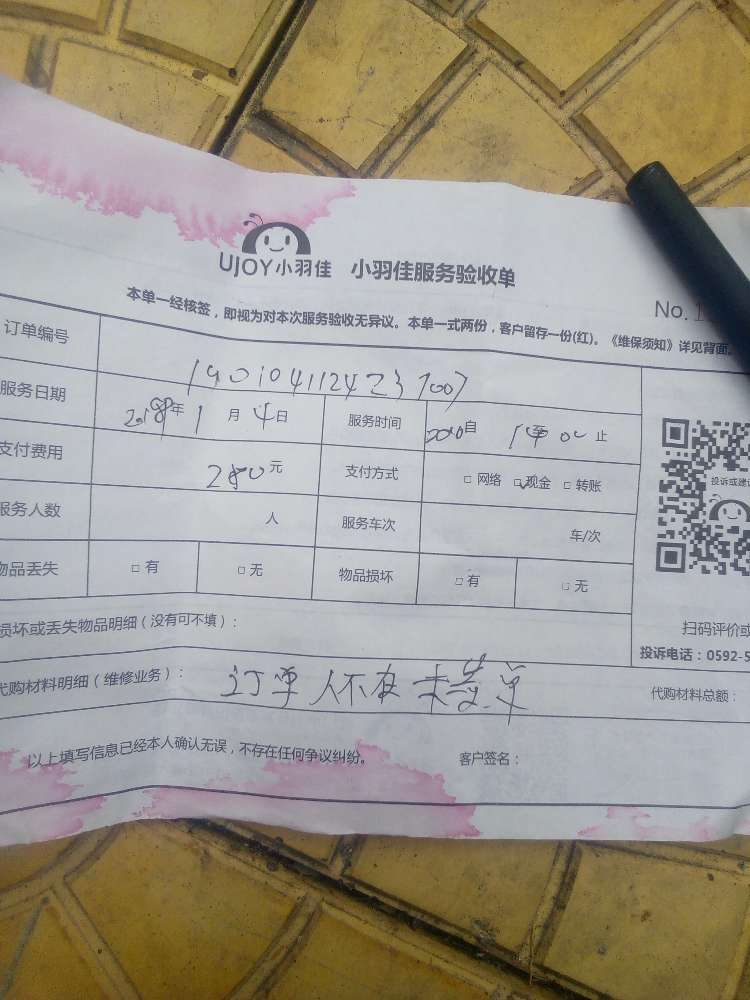 UJOY小羽佳 小羽佳服务验收单
No.
本单一经核签，即视为对本次服务验收无异议。本单一式两份，客户留存一份(红)。《维保须知》详见背面。
订单编号
服务日期 2018年1月4日 服务时间 自 至 止
支付费用 280元 支付方式 □ 网络 ☑ 现金 □ 转账
服务人数 人 服务车次 车/次
物品丢失 □ 有 □ 无 物品损坏 □ 有 □ 无
损坏或丢失物品明细（没有可不填）：
扫码评价或
投诉电话：0592-5
代购材料明细（维修业务）： 订单人不在 未签单 代购材料总额：
以上填写信息已经本人确认无误，不存在任何争议纠纷。 客户签名：